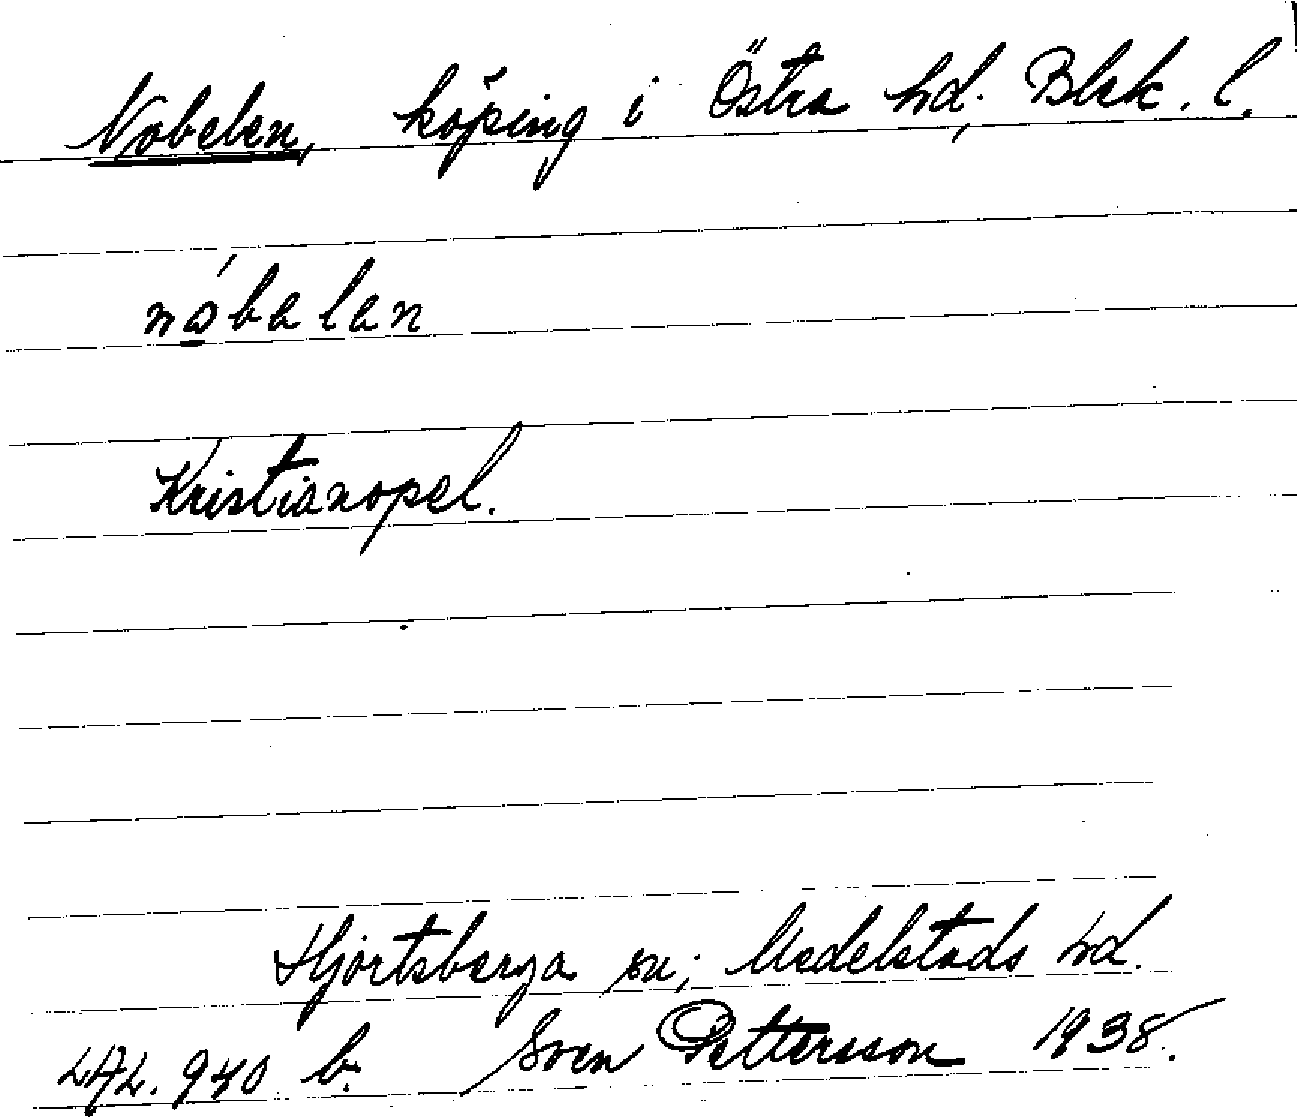 Nobelen, köping i Östra hd, Blek. l.
nóbelen
Kristianopel.
Hjortsberga sn; Medelstads hd.
LAL. 940 b. Sven Pettersson 1938.